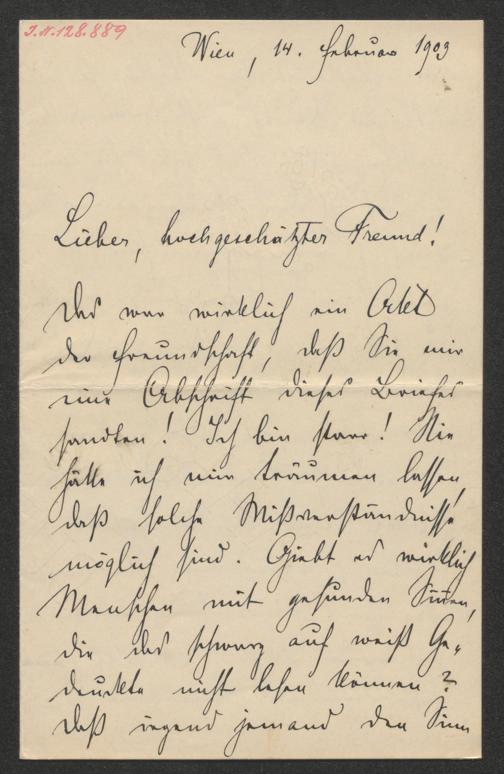 J.N. 128.889
Wien, 14. Februar 1903
Lieber, hochgeschätzter Freund!
Das war wirklich ein Akt
der Freundschaft, daß Sie mir
eine Abschrift dieses Briefes
sandten! Ich bin starr! Nie
hätte ich mir träumen lassen,
daß solche Mißverständnisse
möglich sind. Giebt es wirklich
Menschen mit gesunden Sinnen,
die das schwarz auf weiß Ge-
druckte nicht lesen können?
Daß irgend jemand den Sinn